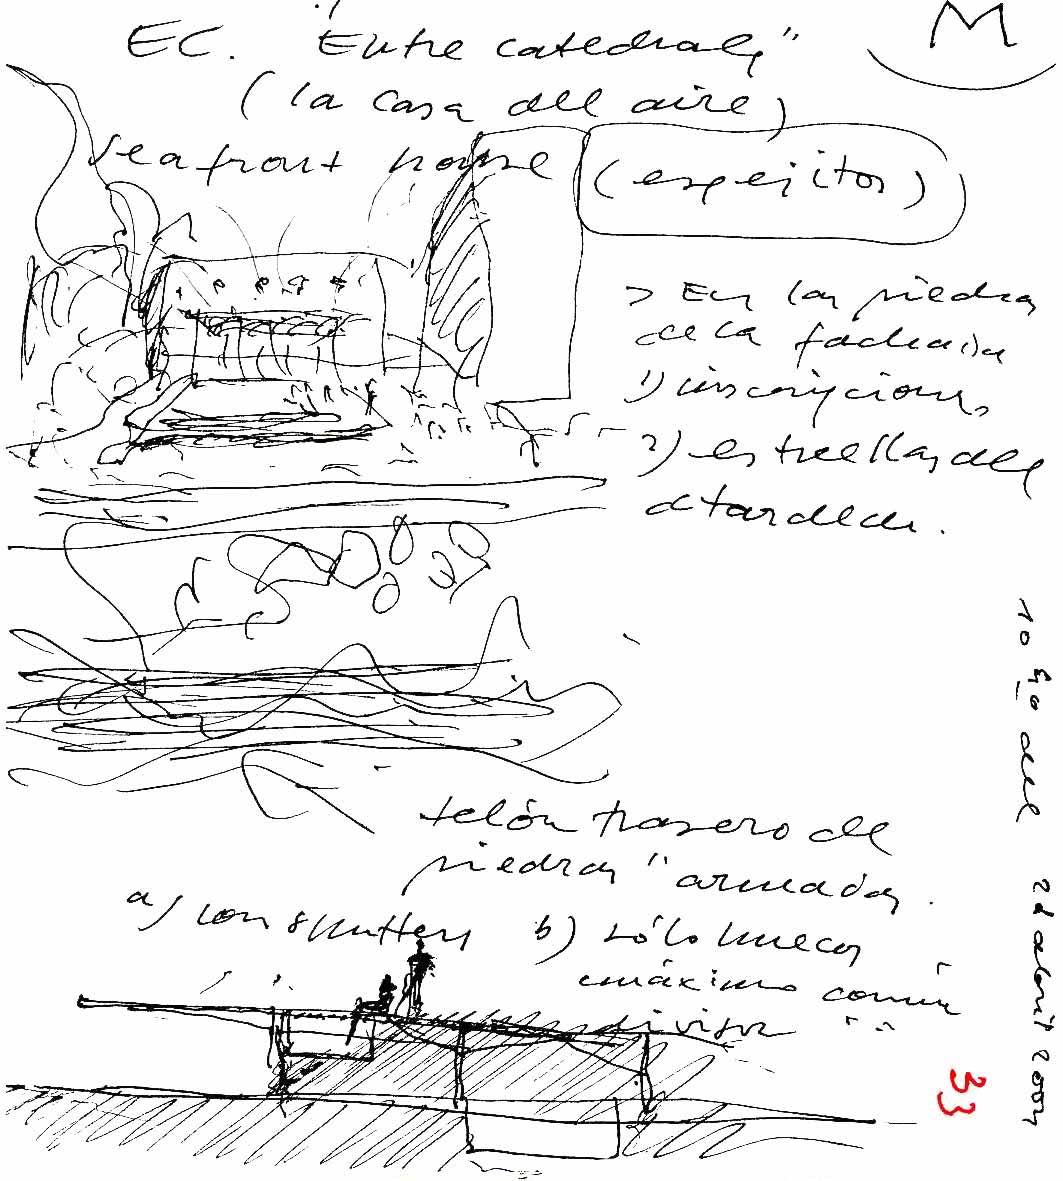 M
EC. "Entre catedrales"
(la casa del aire)
seafront house (espejitos)
> En las piedras
de la fachada
1) inscripciones
2) estrellas del
atardecer.
telón trasero de
piedras "armadas
a) con shutters b) sólo huecos
máximo común
divisor
10 del 2 abril 2004
33